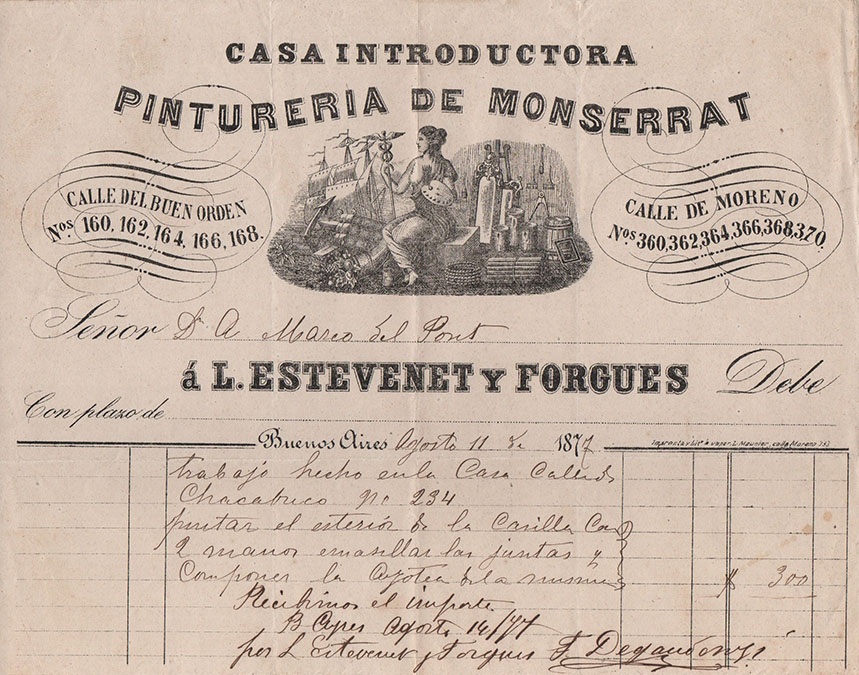 CASA INTRODUCTORA
PINTURERIA DE MONSERRAT
CALLE DEL BUEN ORDEN
Nos. 160, 162, 164, 166, 168.
CALLE DE MORENO
Nos 360, 362, 364, 366, 368, 370.
Señor Dr A Marco del Pont
á L. ESTEVENET Y FORGUES Debe
Con plazo de
Buenos Aires Agosto 11 de 1877
Imprenta y Lit.a á vapor L. Meunier, calle Moreno
trabajo hecho en la Casa Calle de
Chacabuco no 234
pintar el esterior de la Casilla Con
2 manos emasillar las juntas y
Componer la Azotea de la misma $ 300
Recibimos el importe
B Ayres Agosto 14/77
por L Estevenet y Forgues